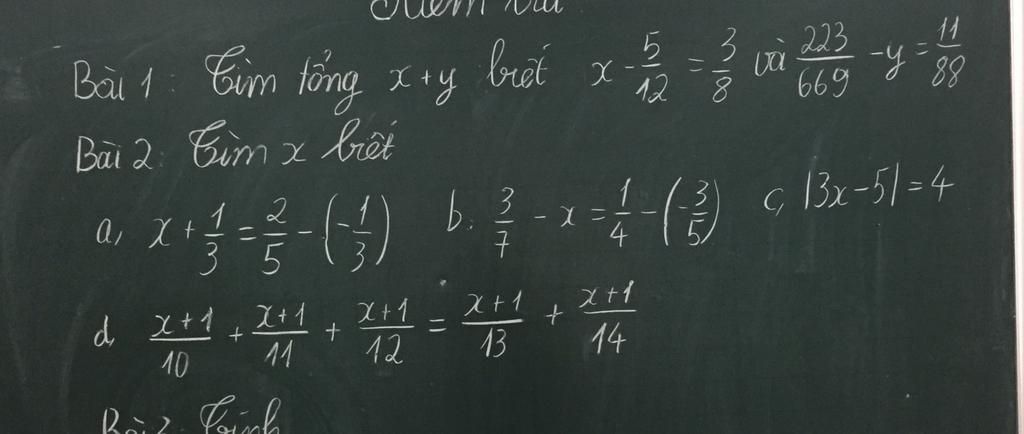 Kiểm tra
Bài 1: Tìm tổng x+y biết x - 5/12 = 3/8 và 223/669 - y = 11/88
Bài 2: Tìm x biết
a, x + 1/3 = 2/5 - (-1/3) b. 3/7 - x = 1/4 - (-3/5) c, |3x-5| = 4
d, x+1/10 + x+1/11 + x+1/12 = x+1/13 + x+1/14
Bài 3: Tính